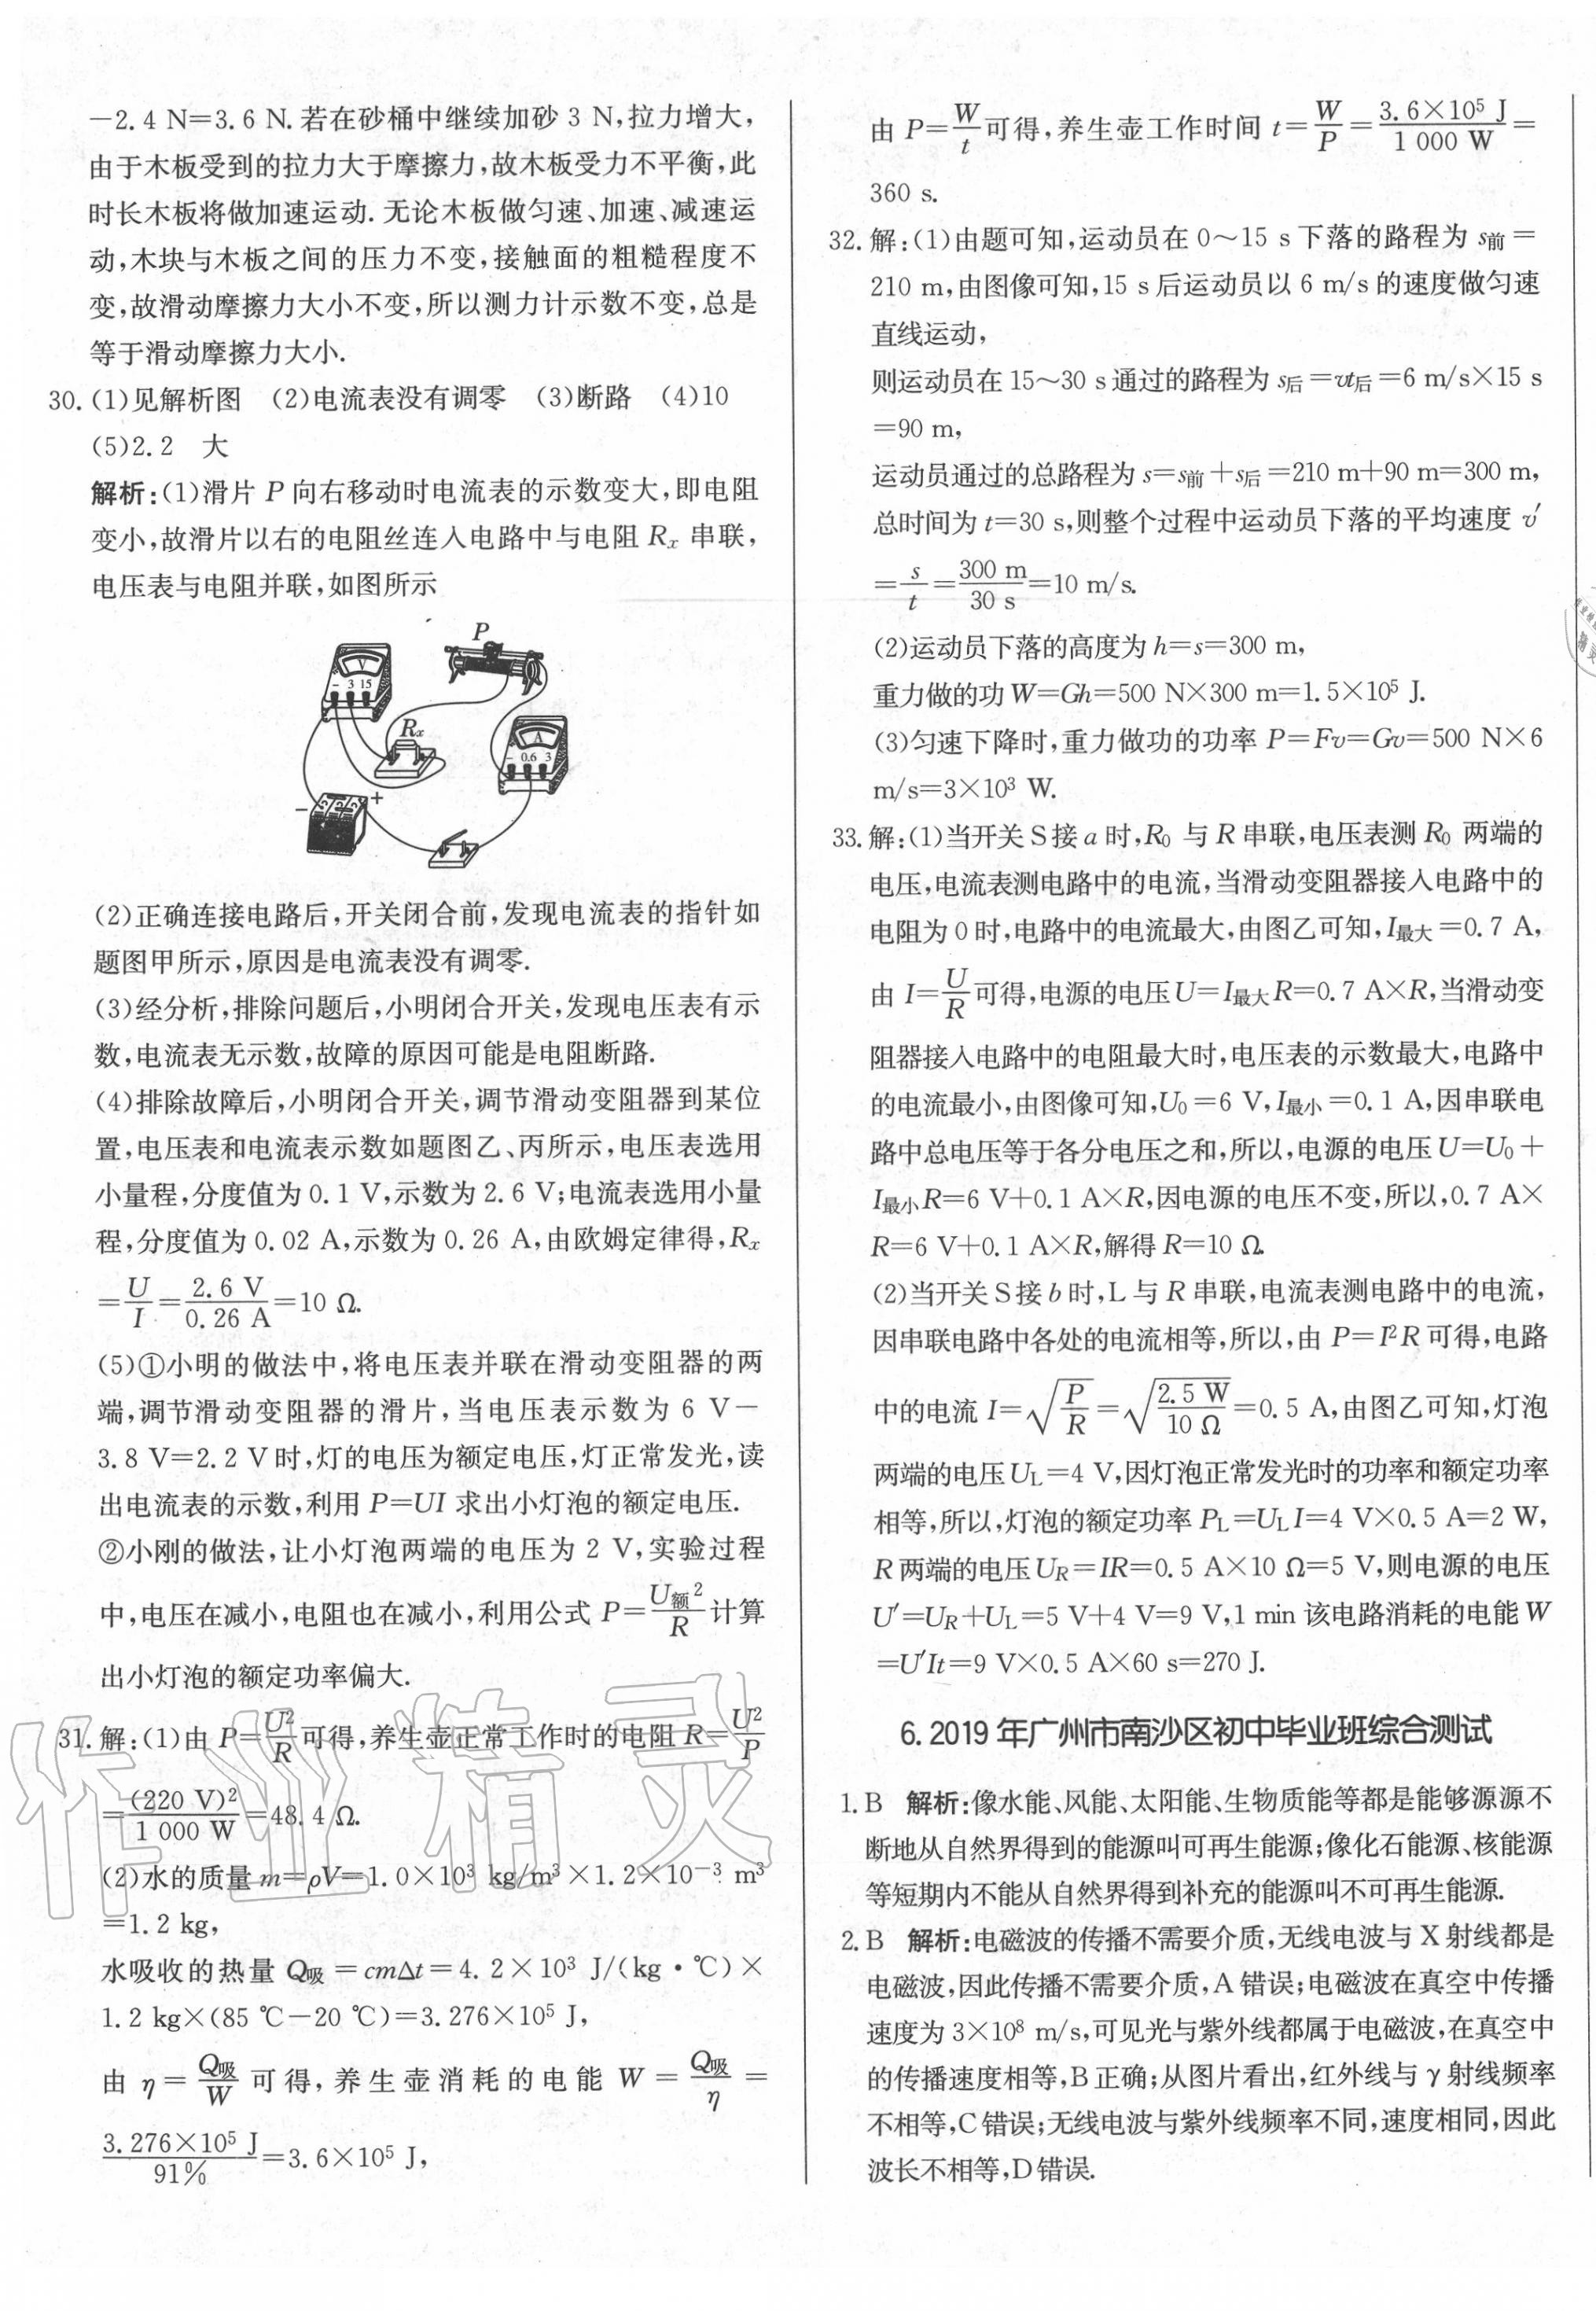 －2.4 N＝3.6 N.若在砂桶中继续加砂 3 N,拉力增大,
由于木板受到的拉力大于摩擦力,故木板受力不平衡,此
时长木板将做加速运动.无论木板做匀速、加速、减速运
动,木块与木板之间的压力不变,接触面的粗糙程度不
变,故滑动摩擦力大小不变,所以测力计示数不变,总是
等于滑动摩擦力大小.
30.(1)见解析图 (2)电流表没有调零 (3)断路 (4)10
(5)2.2 大
解析:(1)滑片 P 向右移动时电流表的示数变大,即电阻
变小,故滑片以右的电阻丝连入电路中与电阻 Rx 串联,
电压表与电阻并联,如图所示
P
V
－ 3 15
Rx
A
－ 0.6 3
－ ＋
(2)正确连接电路后,开关闭合前,发现电流表的指针如
题图甲所示,原因是电流表没有调零.
(3)经分析,排除问题后,小明闭合开关,发现电压表有示
数,电流表无示数,故障的原因可能是电阻断路.
(4)排除故障后,小明闭合开关,调节滑动变阻器到某位
置,电压表和电流表示数如题图乙、丙所示,电压表选用
小量程,分度值为 0.1 V,示数为 2.6 V;电流表选用小量
程,分度值为 0.02 A,示数为 0.26 A,由欧姆定律得,Rx
＝U/I＝2.6 V/0.26 A＝10 Ω.
(5)①小明的做法中,将电压表并联在滑动变阻器的两
端,调节滑动变阻器的滑片,当电压表示数为 6 V－
3.8 V＝2.2 V时,灯的电压为额定电压,灯正常发光,读
出电流表的示数,利用 P＝UI 求出小灯泡的额定电压.
②小刚的做法,让小灯泡两端的电压为 2 V,实验过程
中,电压在减小,电阻也在减小,利用公式 P＝U额²/R 计算
出小灯泡的额定功率偏大.
31.解:(1)由 P＝U²/R可得,养生壶正常工作时的电阻 R＝U²/P
＝(220 V)²/1 000 W＝48.4 Ω.
(2)水的质量 m＝ρV＝1.0×10³ kg/m³×1.2×10⁻³ m³
＝1.2 kg,
水吸收的热量 Q吸＝cmΔt＝4.2×10³ J/(kg·℃)×
1.2 kg×(85 ℃－20 ℃)＝3.276×10⁵ J,
由 η＝Q吸/W 可得,养生壶消耗的电能 W＝Q吸/η＝
3.276×10⁵ J/91%＝3.6×10⁵ J,
作业精灵
由 P＝W/t可得,养生壶工作时间 t＝W/P＝3.6×10⁵ J/1 000 W＝
360 s.
32.解:(1)由题可知,运动员在 0～15 s下落的路程为 s前＝
210 m,由图像可知,15 s后运动员以 6 m/s的速度做匀速
直线运动,
则运动员在 15～30 s通过的路程为 s后＝vt后＝6 m/s×15 s
＝90 m,
运动员通过的总路程为 s＝s前＋s后＝210 m＋90 m＝300 m,
总时间为 t＝30 s,则整个过程中运动员下落的平均速度 v′
＝s/t＝300 m/30 s＝10 m/s.
(2)运动员下落的高度为 h＝s＝300 m,
重力做的功 W＝Gh＝500 N×300 m＝1.5×10⁵ J.
(3)匀速下降时,重力做功的功率 P＝Fv＝Gv＝500 N×6
m/s＝3×10³ W.
33.解:(1)当开关S接 a 时,R₀ 与 R 串联,电压表测 R₀ 两端的
电压,电流表测电路中的电流,当滑动变阻器接入电路中的
电阻为 0 时,电路中的电流最大,由图乙可知,I最大＝0.7 A,
由 I＝U/R可得,电源的电压U＝I最大R＝0.7 A×R,当滑动变
阻器接入电路中的电阻最大时,电压表的示数最大,电路中
的电流最小,由图像可知,U₀＝6 V,I最小＝0.1 A,因串联电
路中总电压等于各分电压之和,所以,电源的电压 U＝U₀＋
I最小R＝6 V＋0.1 A×R,因电源的电压不变,所以,0.7 A×
R＝6 V＋0.1 A×R,解得 R＝10 Ω.
(2)当开关S接 b 时,L 与 R 串联,电流表测电路中的电流,
因串联电路中各处的电流相等,所以,由 P＝I²R 可得,电路
中的电流 I＝√(P/R)＝√(2.5 W/10 Ω)＝0.5 A,由图乙可知,灯泡
两端的电压 UL＝4 V,因灯泡正常发光时的功率和额定功率
相等,所以,灯泡的额定功率 PL＝ULI＝4 V×0.5 A＝2 W,
R 两端的电压 UR＝IR＝0.5 A×10 Ω＝5 V,则电源的电压
U′＝UR＋UL＝5 V＋4 V＝9 V,1 min 该电路消耗的电能 W
＝U′It＝9 V×0.5 A×60 s＝270 J.
6.2019年广州市南沙区初中毕业班综合测试
1.B 解析:像水能、风能、太阳能、生物质能等都是能够源源不
断地从自然界得到的能源叫可再生能源;像化石能源、核能源
等短期内不能从自然界得到补充的能源叫不可再生能源.
2.B 解析:电磁波的传播不需要介质,无线电波与 X 射线都是
电磁波,因此传播不需要介质,A 错误;电磁波在真空中传播
速度为 3×10⁸ m/s,可见光与紫外线都属于电磁波,在真空中
的传播速度相等,B 正确;从图片看出,红外线与 γ 射线频率
不相等,C 错误;无线电波与紫外线频率不同,速度相同,因此
波长不相等,D 错误.